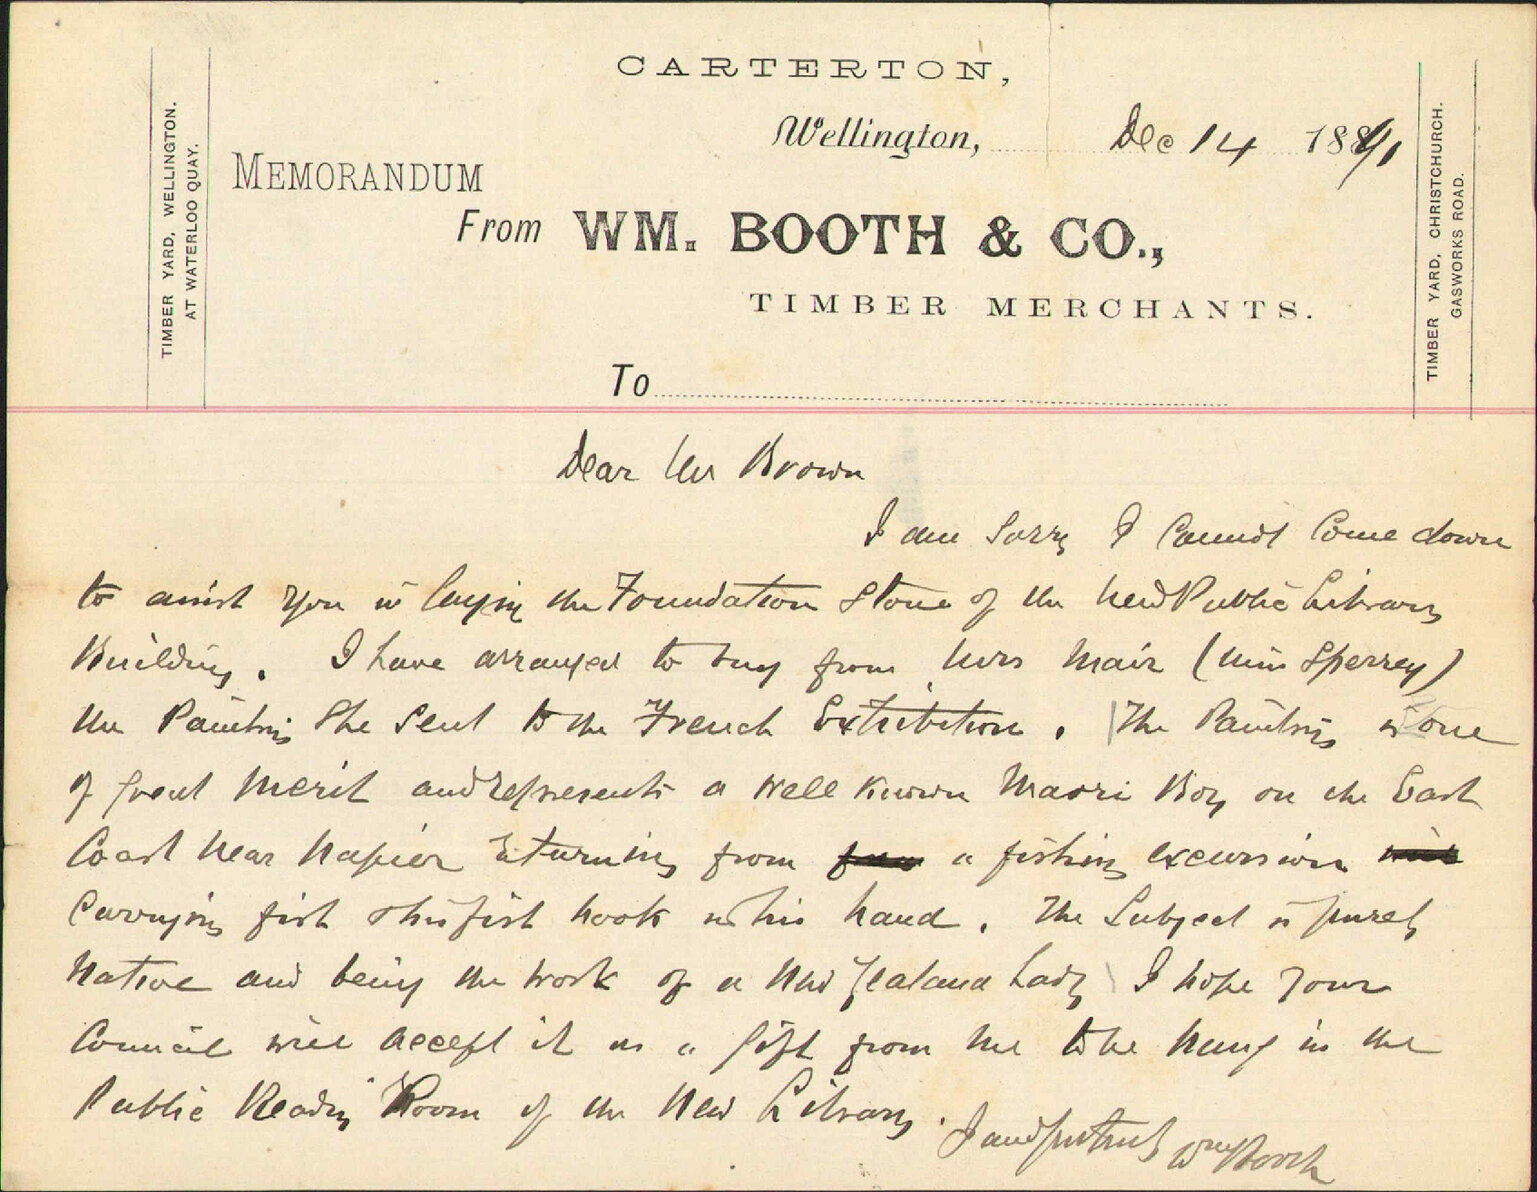 CARTERTON,
Wellington, Dec 14 1891
MEMORANDUM
From WM. BOOTH & CO.,
TIMBER MERCHANTS.
TIMBER YARD, WELLINGTON.
AT WATERLOO QUAY.
TIMBER YARD, CHRISTCHURCH.
GASWORKS ROAD.
To
Dear Mr Brown
I am Sorry I Cannot Come down
to assist you in laying the Foundation Stone of the New Public Library
Building. I have arranged to buy from Mrs Mair (Miss Sperrey)
the Painting She Sent to the French Exhibition. The Painting is one
of great Merit and represents a well known Maori Boy on the East
Coast near Napier returning from a fishing excursion
Carrying fish & his fish hook in his hand. The Subject is purely
Native and being the work of a New Zealand Lady I hope your
Council will accept it as a gift from me to be hung in the
Public Reading Room of the New Library.
Wm Booth